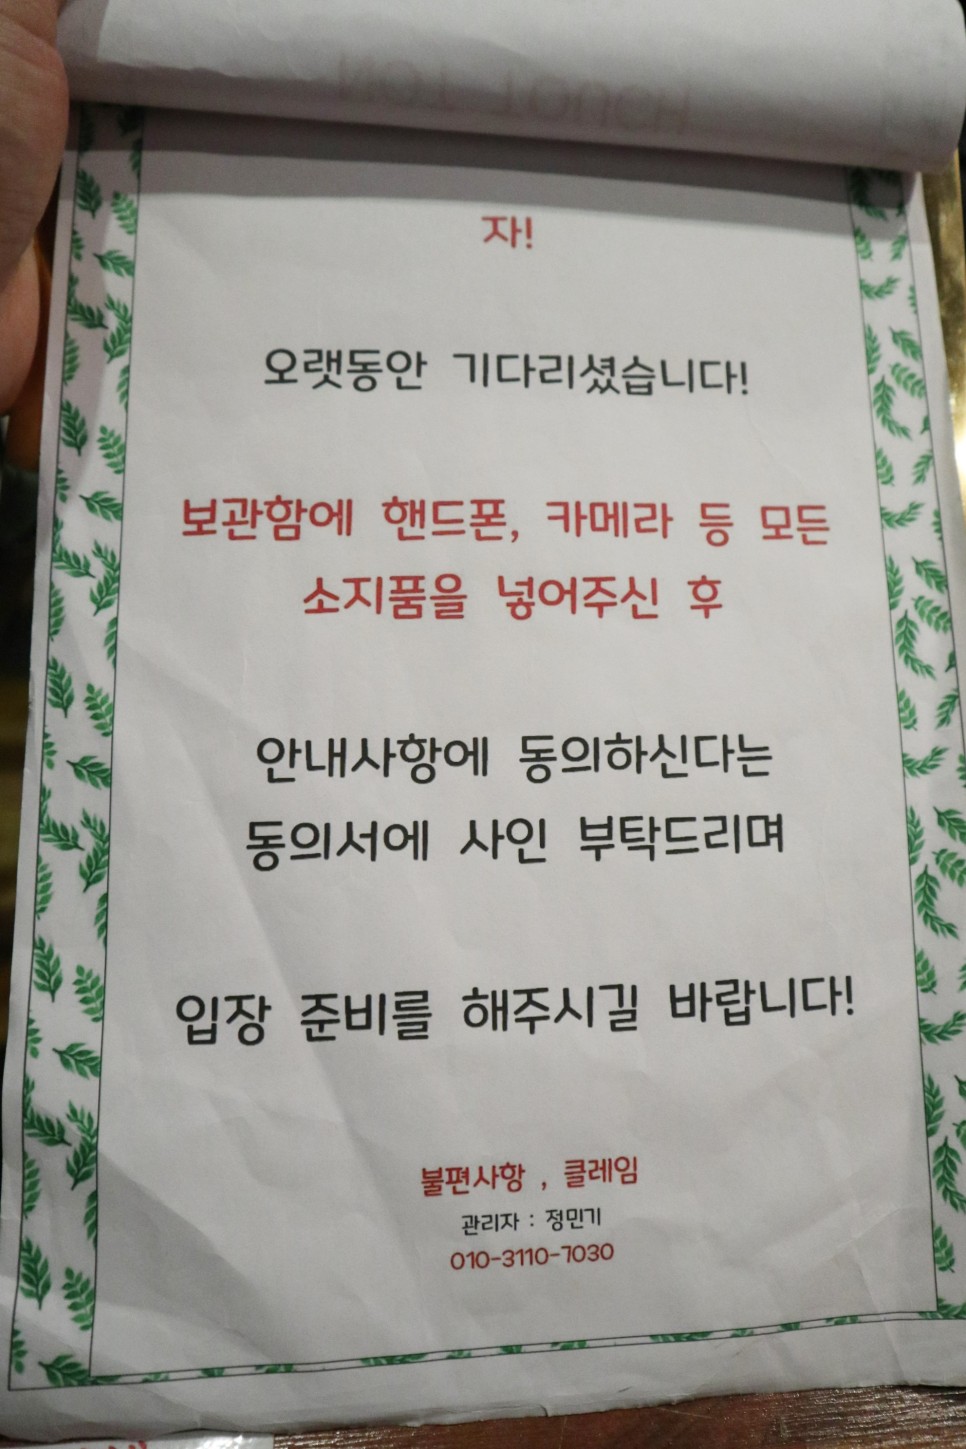 자!
오랫동안 기다리셨습니다!
보관함에 핸드폰, 카메라 등 모든
소지품을 넣어주신 후
안내사항에 동의하신다는
동의서에 사인 부탁드리며
입장 준비를 해주시길 바랍니다!
불편사항 , 클레임
관리자 : 정민기
010-3110-7030